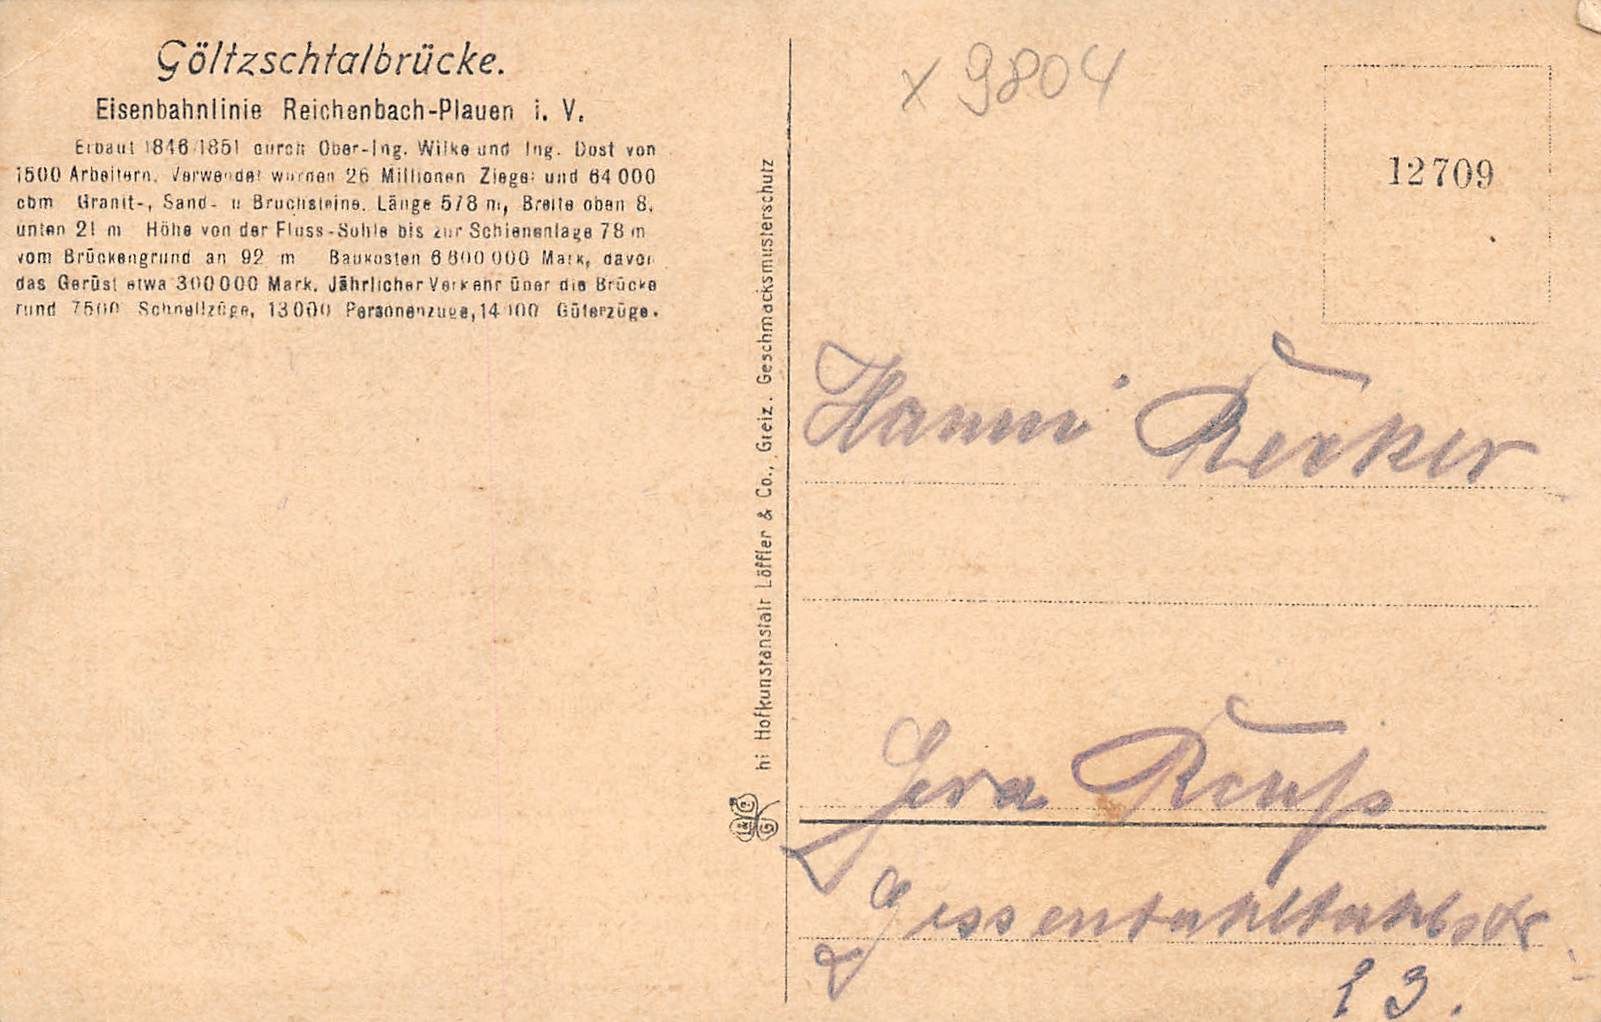 Göltzschtalbrücke.
Eisenbahnlinie Reichenbach-Plauen i. V.
Erbaut 1846/1851 durch Ober-Ing. Wilke und Ing. Dost von
1500 Arbeitern. Verwendet wurden 26 Millionen Ziegel und 64 000
cbm Granit-, Sand- u Bruchsteine. Länge 578 m, Breite oben 8,
unten 21 m Höhe von der Fluss-Sohle bis zur Schienenlage 78 m
vom Brückengrund an 92 m Baukosten 6 600 000 Mark, davon
das Gerüst etwa 300000 Mark. Jährlicher Verkehr über die Brücke
rund 7500 Schnellzüge, 13000 Personenzüge, 14000 Güterzüge.
hi Hofkunstanstalt Löffler & Co., Greiz. Geschmacksmusterschutz
L&C
G
x 9804
12709
Hanni Recker
Gera Reuß
23.